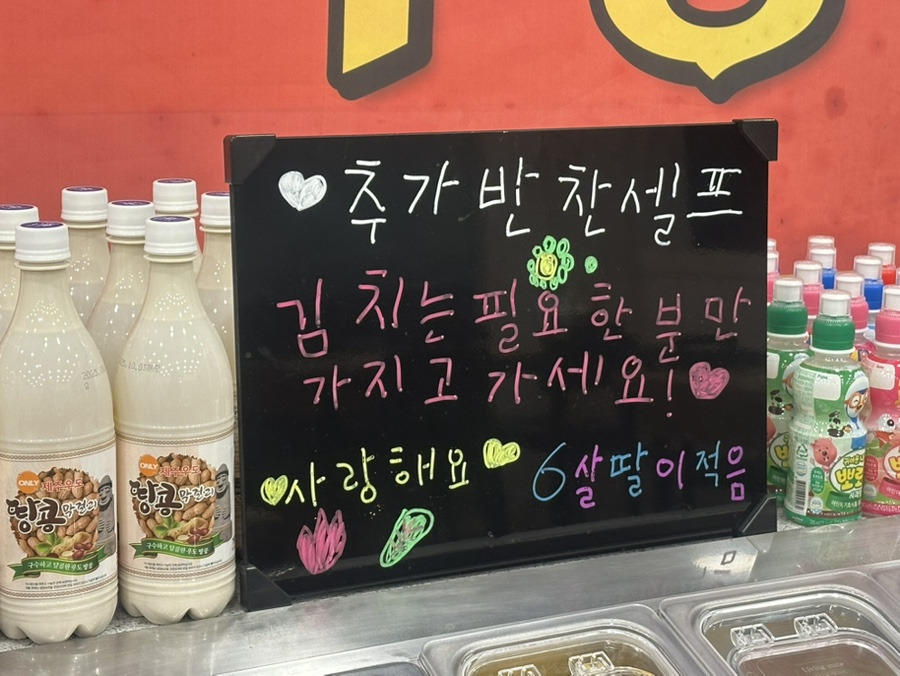 추가반찬셀프
김치는필요한분만
가지고 가세요!
사랑해요
6살딸이적음
ONLY 제주우도
땅콩 막걸리
구수하고 달콤한 우도 땅콩
ONLY 제주우도
땅콩 막걸리
구수하고 달콤한 우도 땅콩